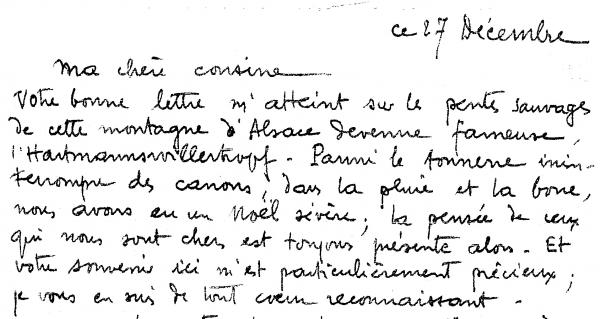 ce 27 Décembre
Ma chère cousine
Votre bonne lettre m'atteint sur les pentes sauvages
de cette montagne d'Alsace devenue fameuse,
l'Hartmannswillerkopf - Parmi le tonnerre inin-
terrompu des canons, dans la pluie et la boue,
nous avons eu un Noël sévère; la pensée de ceux
qui nous sont chers est toujours présente alors. Et
votre souvenir ici m'est particulièrement précieux;
je vous en suis de tout coeur reconnaissant -